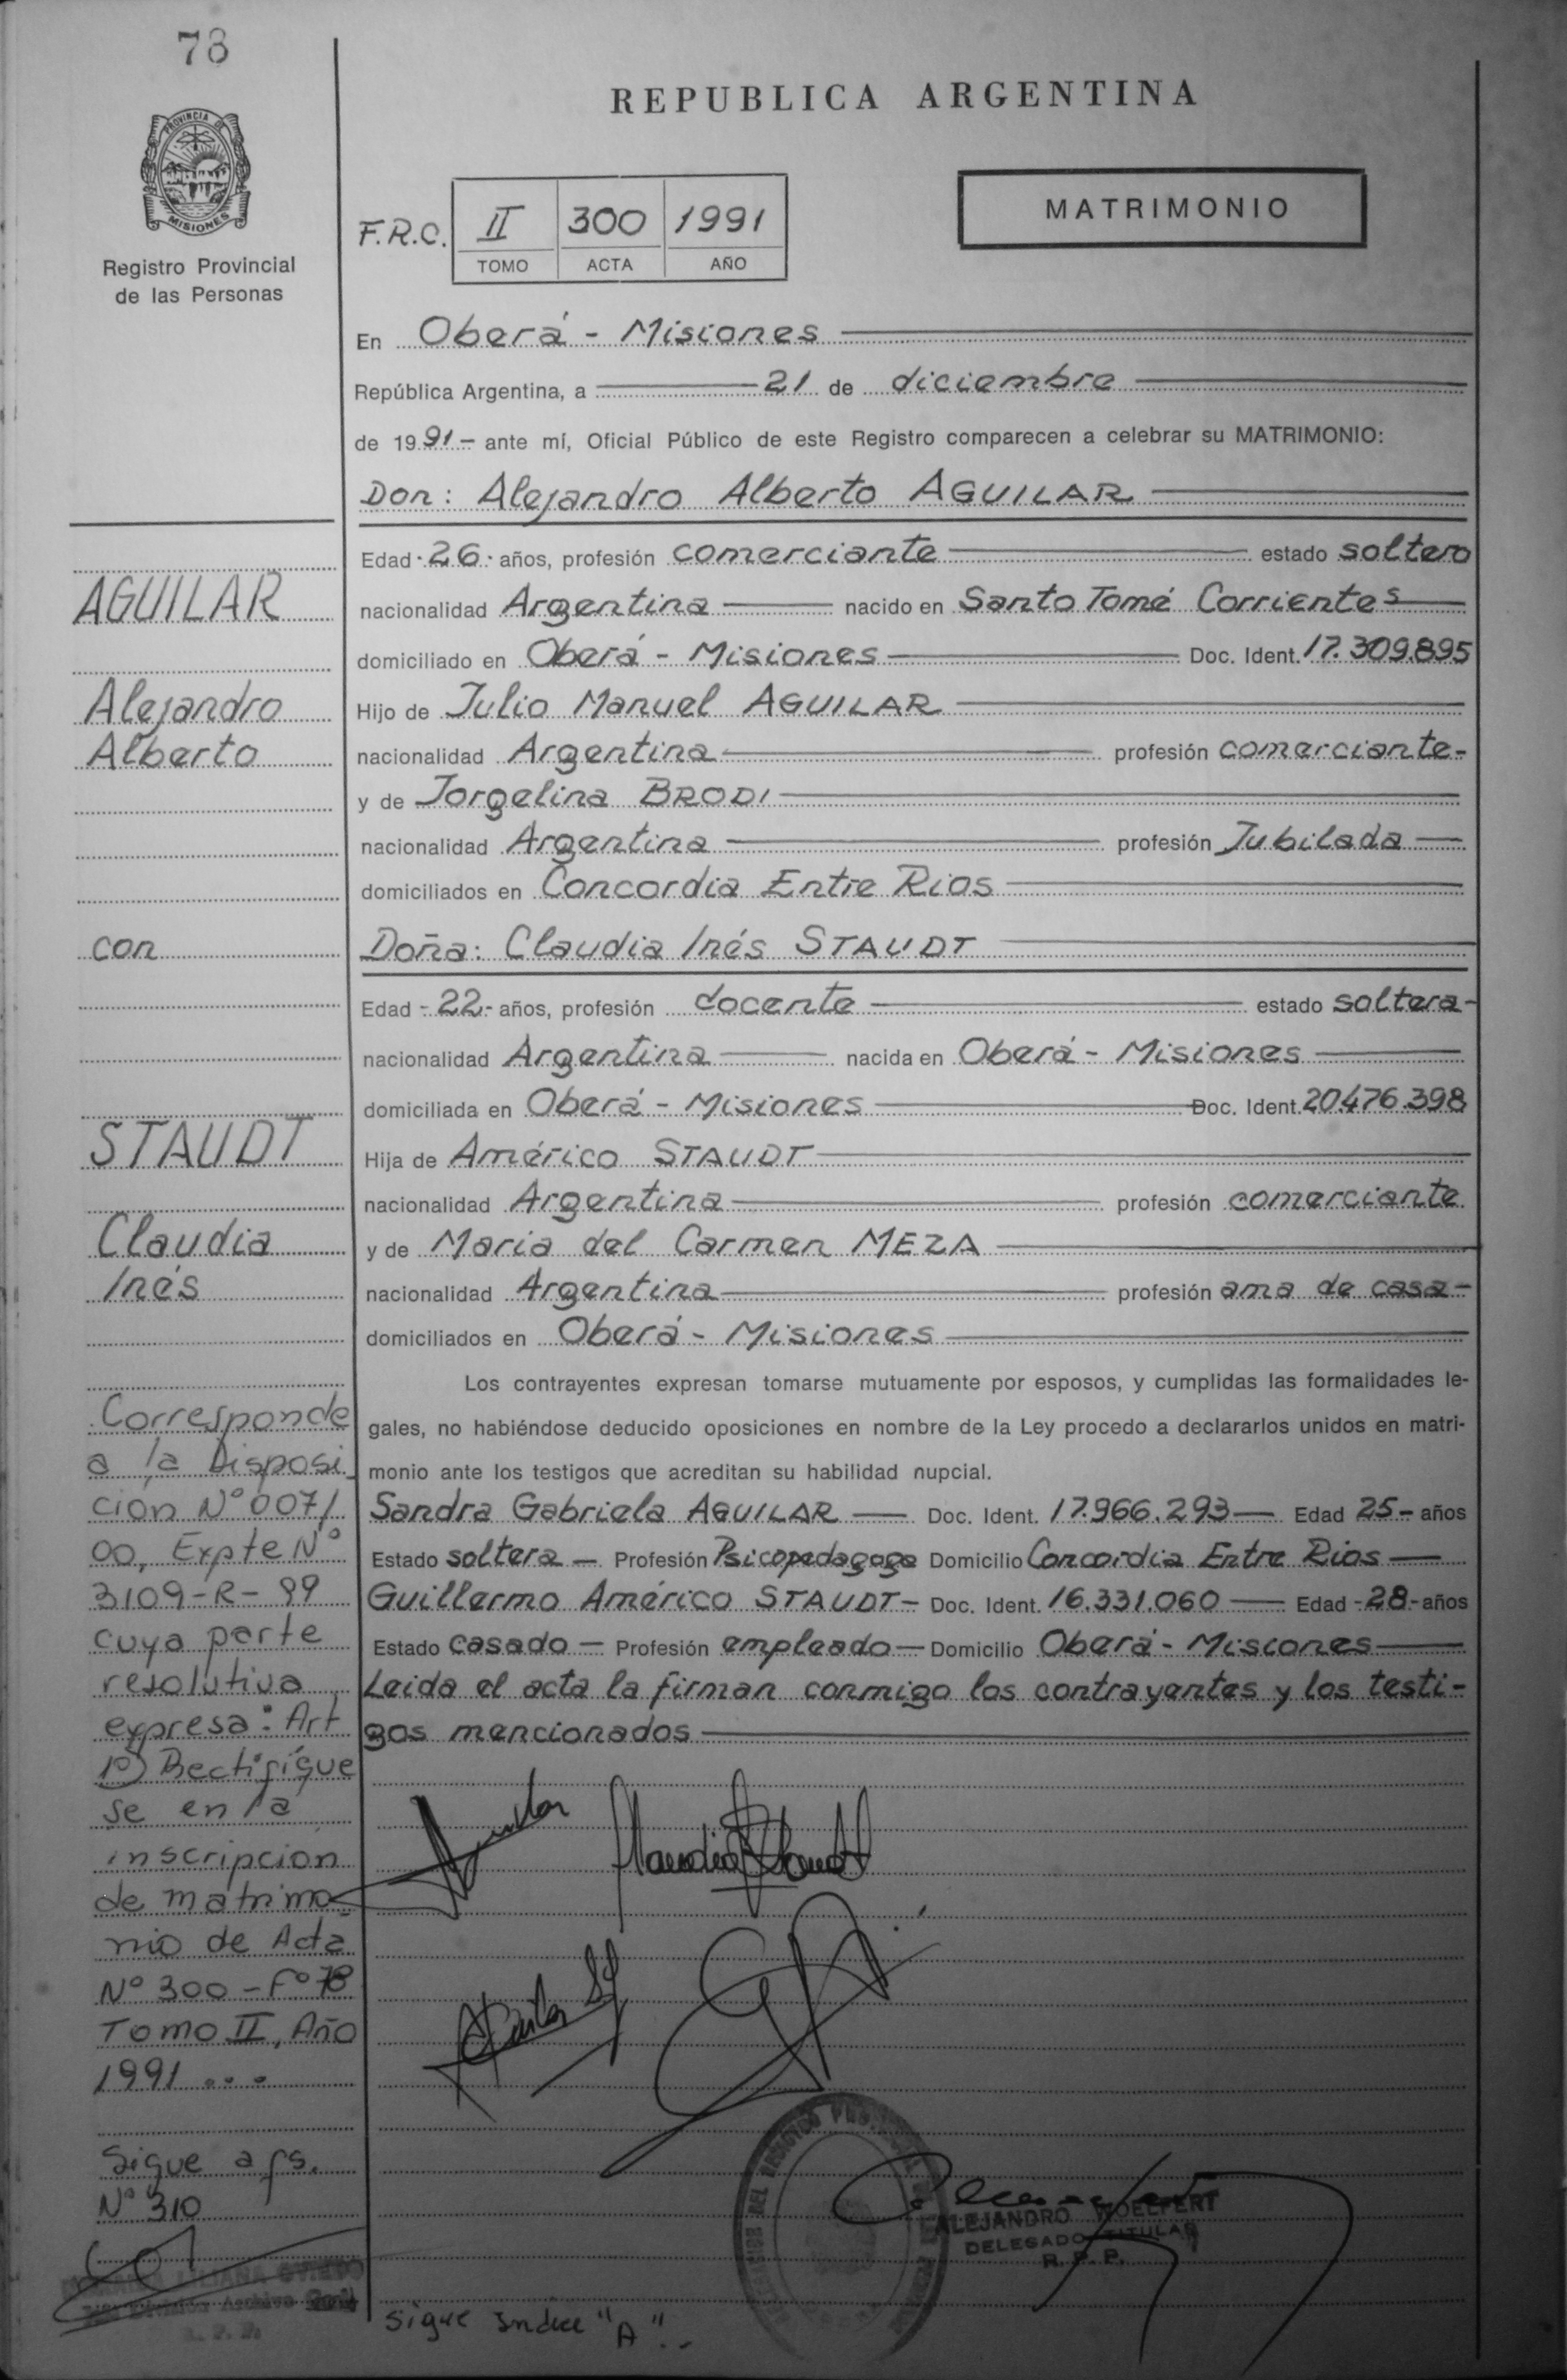 78
PROVINCIA DE
MISIONES
Registro Provincial
de las Personas
REPUBLICA ARGENTINA
MATRIMONIO
F.R.C. II 300 1991
TOMO ACTA AÑO
En Oberá - Misiones
República Argentina, a 21 de diciembre
de 1991 - ante mí, Oficial Público de este Registro comparecen a celebrar su MATRIMONIO:
Don: Alejandro Alberto AGUILAR
Edad - 26 - años, profesión comerciante estado soltero
nacionalidad Argentina nacido en Santo Tomé Corrientes
domiciliado en Oberá - Misiones Doc. Ident. 17.309.895
Hijo de Julio Manuel AGUILAR
nacionalidad Argentina profesión comerciante -
y de Jorgelina BRODI
nacionalidad Argentina profesión Jubilada
domiciliados en Concordia Entre Rios
Doña: Claudia Inés STAUDT
Edad - 22 - años, profesión docente estado soltera -
nacionalidad Argentina nacida en Oberá - Misiones
domiciliada en Oberá - Misiones Doc. Ident. 20.476.398
Hija de Américo STAUDT
nacionalidad Argentina profesión comerciante
y de Maria del Carmen MEZA
nacionalidad Argentina profesión ama de casa -
domiciliados en Oberá - Misiones
Los contrayentes expresan tomarse mutuamente por esposos, y cumplidas las formalidades le-
gales, no habiéndose deducido oposiciones en nombre de la Ley procedo a declararlos unidos en matri-
monio ante los testigos que acreditan su habilidad nupcial.
Sandra Gabriela AGUILAR Doc. Ident. 17.966.293 Edad 25 - años
Estado soltera - Profesión Psicopedagoga Domicilio Concordia Entre Rios
Guillermo Américo STAUDT - Doc. Ident. 16.331.060 Edad - 28 - años
Estado casado - Profesión empleado - Domicilio Oberá - Misiones
Leida el acta la firman conmigo los contrayentes y los testi-
gos mencionados
ALEJANDRO WOELFERT
DELEGADO TITULAR
R. P. P.
Sigue Indice "A".-
AGUILAR
Alejandro
Alberto
con
STAUDT
Claudia
Inés
Corresponde
a la Disposi-
ción Nº 007/
00, Expte Nº
3109-R-99
cuya parte
resolutiva
expresa: Art
1º) Rectifíque
se en la
inscripcion
de matrimo-
nio de Acta
Nº 300 - Fº 78
Tomo II, Año
1991 ...
Sigue a fs.
Nº 310
LILIANA OVIEDO